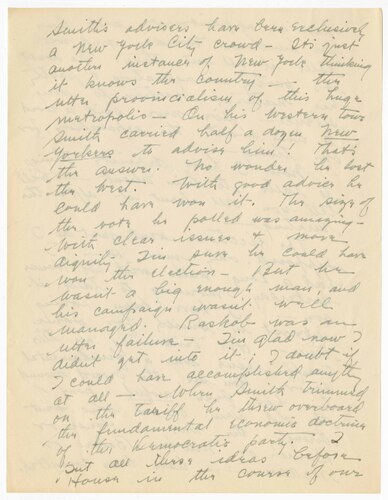 Smith's advisers have been exclusively
a New York City crowd – It's just
another instance of New York thinking
it knows the country – the
utter provincialism of this huge
metropolis – On his western tour
Smith carried half a dozen New
Yorkers to advise him! That's
the answer. No wonder he lost
the west. With good advice he
could have won it. The size of
the vote he polled was amazing –
With clear issues & more
dignity I'm sure he could have
won the election – But he
wasn't a big enough man, and
his campaign wasn't well
managed. Raskob was an
utter failure – I'm glad now I
didn't get into it; I doubt if
I could have accomplished anyth
at all – When Smith trimmed
on the tariff he threw overboard
the fundamental economic doctrine
of the Democratic party. – I
put all these ideas before
House in the course of our